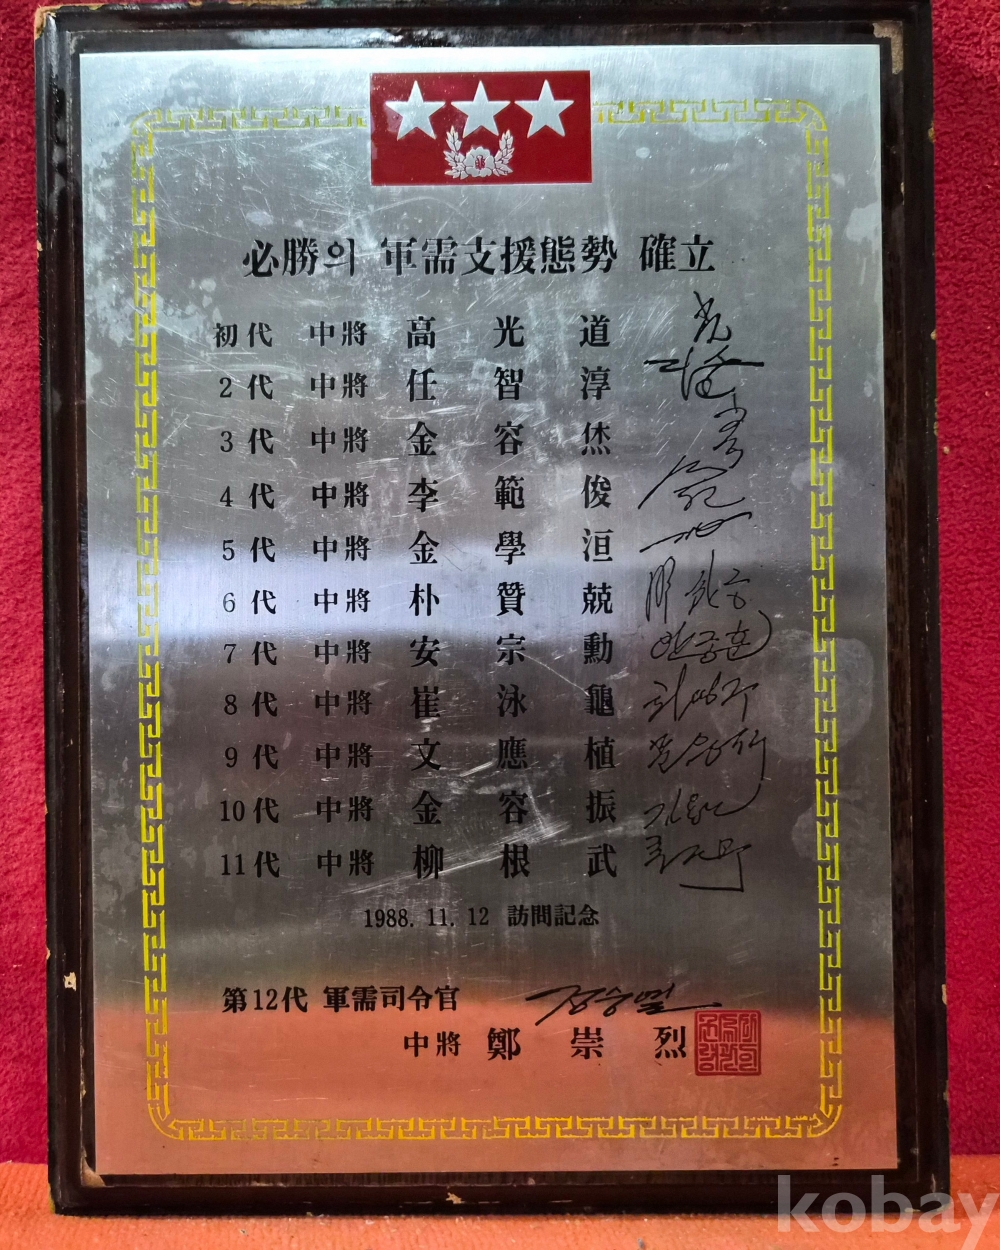 必勝의 軍需支援態勢 確立
初代 中將 高光道
2代 中將 任智淳
3代 中將 金容烋
4代 中將 李範俊
5代 中將 金學洹
6代 中將 朴贊兢
7代 中將 安宗勳
8代 中將 崔泳龜
9代 中將 文應植
10代 中將 金容振
11代 中將 柳根武
1988. 11. 12 訪問記念
第12代 軍需司令官
정숭렬
中將 鄭崇烈
kobay